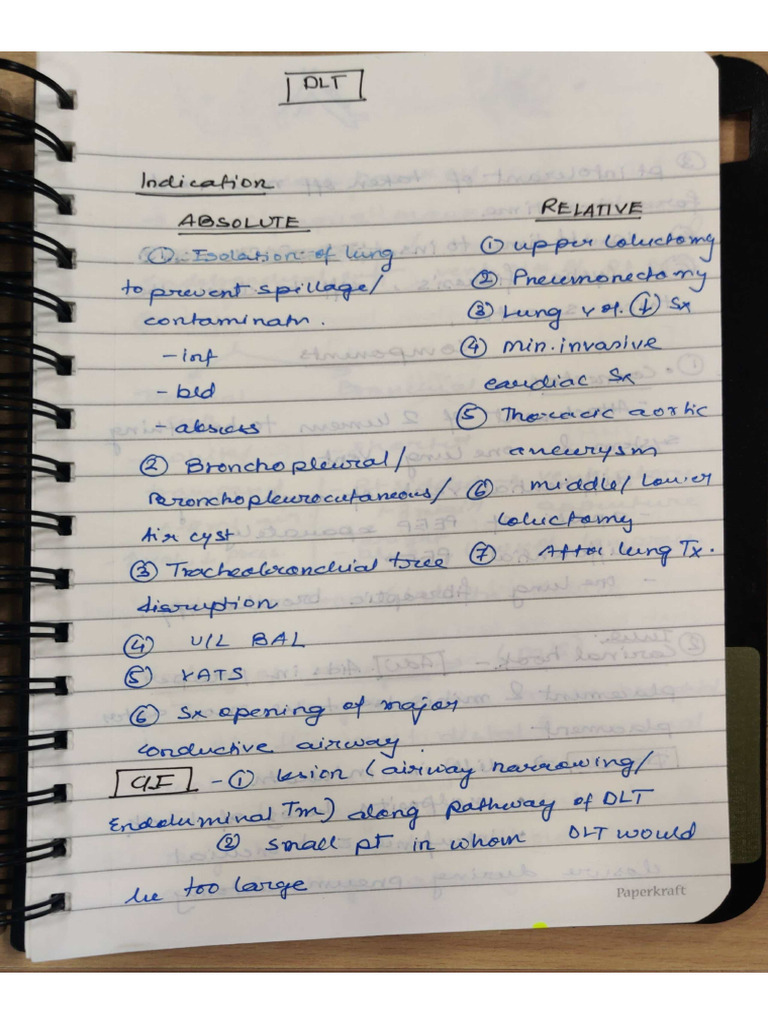 DLT
Indication
ABSOLUTE
① Isolation of lung
to prevent spillage/
contaminatn.
- inf
- bld
- absess
② Bronchopleural/
Bronchopleurocutaneous/
Air cyst
③ Tracheobronchial tree
disruption
④ U/L BAL
⑤ VATS
⑥ Sx opening of major
conductive airway.
RELATIVE
① upper lobectomy
② Pneumonectomy
③ Lung vol. (↓) Sx
④ Min. invasive
cardiac Sx
⑤ Thoracic aortic
aneurysm
⑥ middle/Lower
lobectomy
⑦ After lung Tx.
CI - ① lesion (airway narrowing/
Endoluminal Tm) along pathway of DLT
② small pt in whom DLT would
be too large
Paperkraft